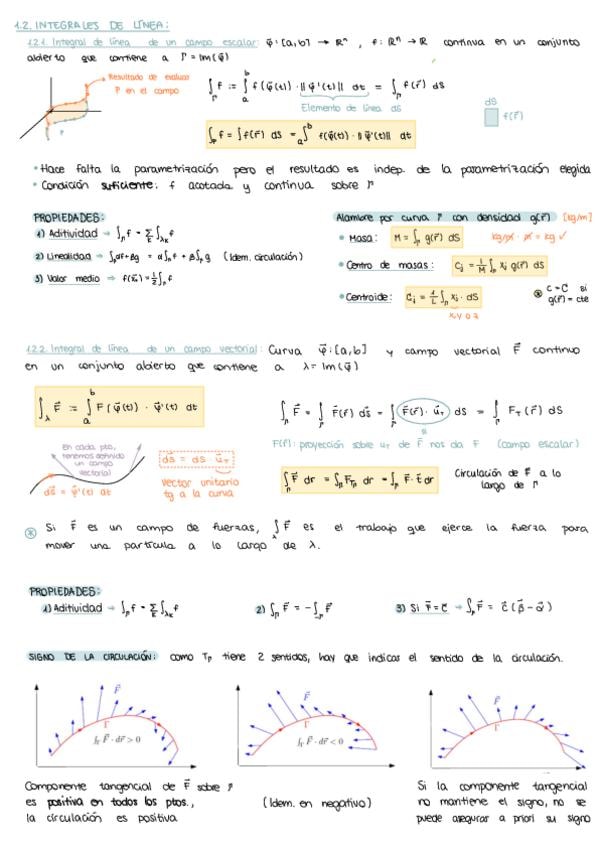 1.2. INTEGRALES DE LÍNEA:
1.2.1. Integral de línea de un campo escalar: φ⃗: [a,b] → ℝⁿ, f: ℝⁿ → ℝ continua en un conjunto
abierto que contiene a Γ = Im(φ⃗)
Resultado de evaluar
Γ en el campo
∫_Γ f := ∫_a^b f(φ⃗(t)) · ||φ⃗'(t)|| dt = ∫_Γ f(r⃗) ds
Elemento de línea ds
ds
f(r⃗)
∫_Γ f = ∫ f(r⃗) ds = ∫_a^b f(φ⃗(t)) · ||φ⃗'(t)|| dt
Γ
• Hace falta la parametrización pero el resultado es indep. de la parametrización elegida
• Condición suficiente: f acotada y continua sobre Γ
PROPIEDADES:
1) Aditividad → ∫_Γ f = Σ_k ∫_λk f
2) Linealidad → ∫_Γ αf+βg = α∫_Γ f + β∫_Γ g (Idem. circulación)
3) Valor medio → f(x⃗₀) = 1/L ∫_Γ f
Alambre por curva Γ con densidad g(r⃗) [kg/m]
• Masa: M = ∫_Γ g(r⃗) ds kg/m · m = kg ✓
• Centro de masas: C_i = 1/M ∫_Γ x_i g(r⃗) ds
• Centroide: C_i = 1/L ∫_Γ x_i · ds
x, y o z
⊛ C = C si
g(r⃗) = cte
1.2.2. Integral de línea de un campo vectorial: Curva φ⃗: [a,b] y campo vectorial F⃗ continuo
en un conjunto abierto que contiene a λ = Im(φ⃗)
∫_λ F⃗ := ∫_a^b F(φ⃗(t)) · φ⃗'(t) dt
∫_Γ F⃗ = ∫_Γ F⃗(r⃗) ds⃗ = ∫_Γ F⃗(r⃗) · u⃗_T ds = ∫_Γ F_T(r⃗) ds
si
F(r⃗): proyección sobre u_T de F⃗ nos da F (campo escalar)
En cada pto,
tenemos definido
un campo
vectorial
ds⃗ = φ⃗'(t) dt
ds⃗ = ds · u⃗_T
vector unitario
tg a la curva
∫_Γ F⃗ dr = ∫_Γ F_Tp dr = ∫_Γ F⃗ · t⃗ dr
Circulación de F⃗ a lo
largo de Γ
⊛ Si F⃗ es un campo de fuerzas, ∫_λ F⃗ es el trabajo que ejerce la fuerza para
mover una partícula a lo largo de λ.
PROPIEDADES:
1) Aditividad → ∫_Γ f = Σ_k ∫_λk f
2) ∫_Γ F⃗ = -∫_-Γ F⃗
3) Si F⃗ = C⃗ → ∫_Γ F⃗ = C⃗ (β⃗ - α⃗)
SIGNO DE LA CIRCULACIÓN: como T_Γ tiene 2 sentidos, hay que indicar el sentido de la circulación.
F⃗
Γ
∫_Γ F⃗ · dr⃗ > 0
F⃗
Γ
∫_Γ F⃗ · dr⃗ < 0
F⃗
Γ
Componente tangencial de F⃗ sobre Γ
es positiva en todos los ptos.,
la circulación es positiva
(Idem. en negativo)
Si la componente tangencial
no mantiene el signo, no se
puede asegurar a priori su signo